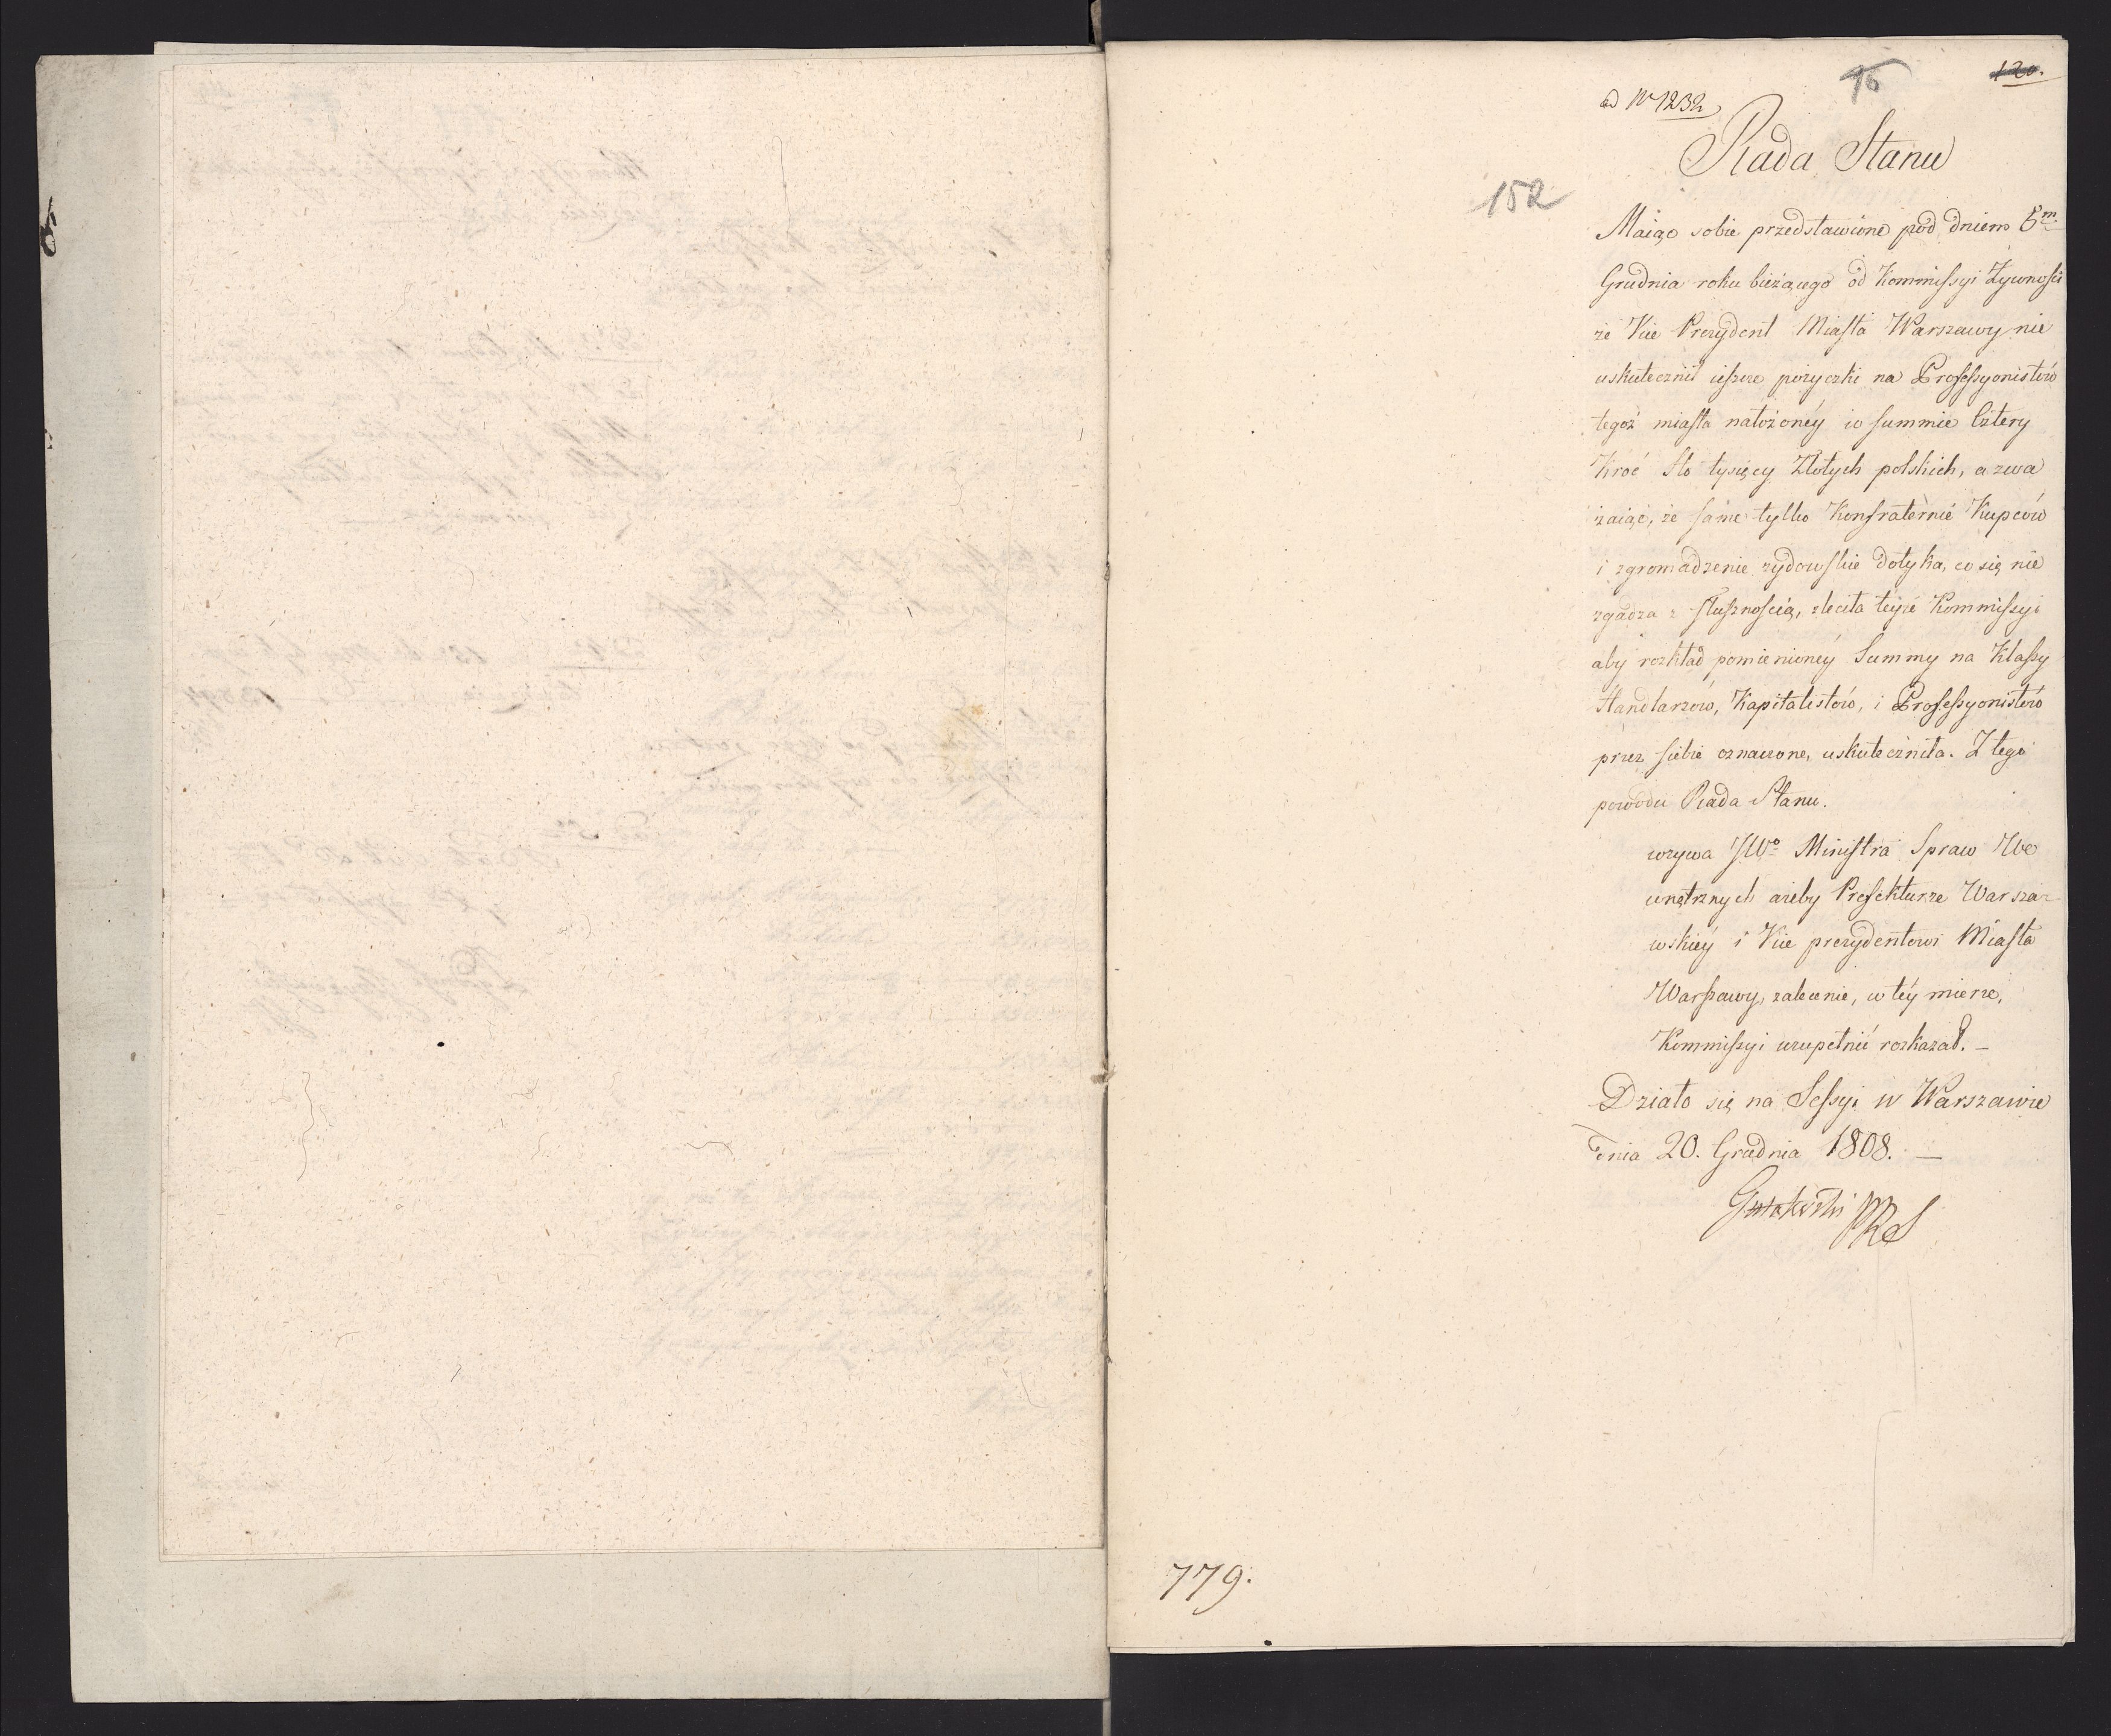 120.
95
ad Nr 1232
Rada Stanu
152
Maiąc sobie przedstawione pod dniem 5m
Grudnia roku bieżącego od Kommissyi Żywności
że Vice Prezydent Miasta Warszawy nie
uskutecznił ieszcze pożyczki na Professyonistów
tegoż miasta nałożoney w summie Cztery
Kroć Sto tysięcy Złotych polskich, a zwa
żaiąc, że same tylko Konfraternie Kupców
i zgromadzenie żydowskie dotyka, co się nie
zgadza z słusznością, zleciła teyże Kommissyi
aby rozkład pomienioney Summy na Klassy
Handlarzów, Kapitalistów, i Professyonistów
przez siebie oznaczone, uskuteczniła. Z tego
powodu Rada Stanu.
wzywa JWo Ministra Spraw We
wnętrznych ażeby Prefekturze Warsza-
wskiey i Vice prezydentowi Miasta
Warszawy, zalecenie, w tey mierze,
Kommissyi uzupełnić rozkazał. —
Działo się na Sessyi w Warszawie
dnia 20. Grudnia 1808. —
Gutakowski PRS
779.